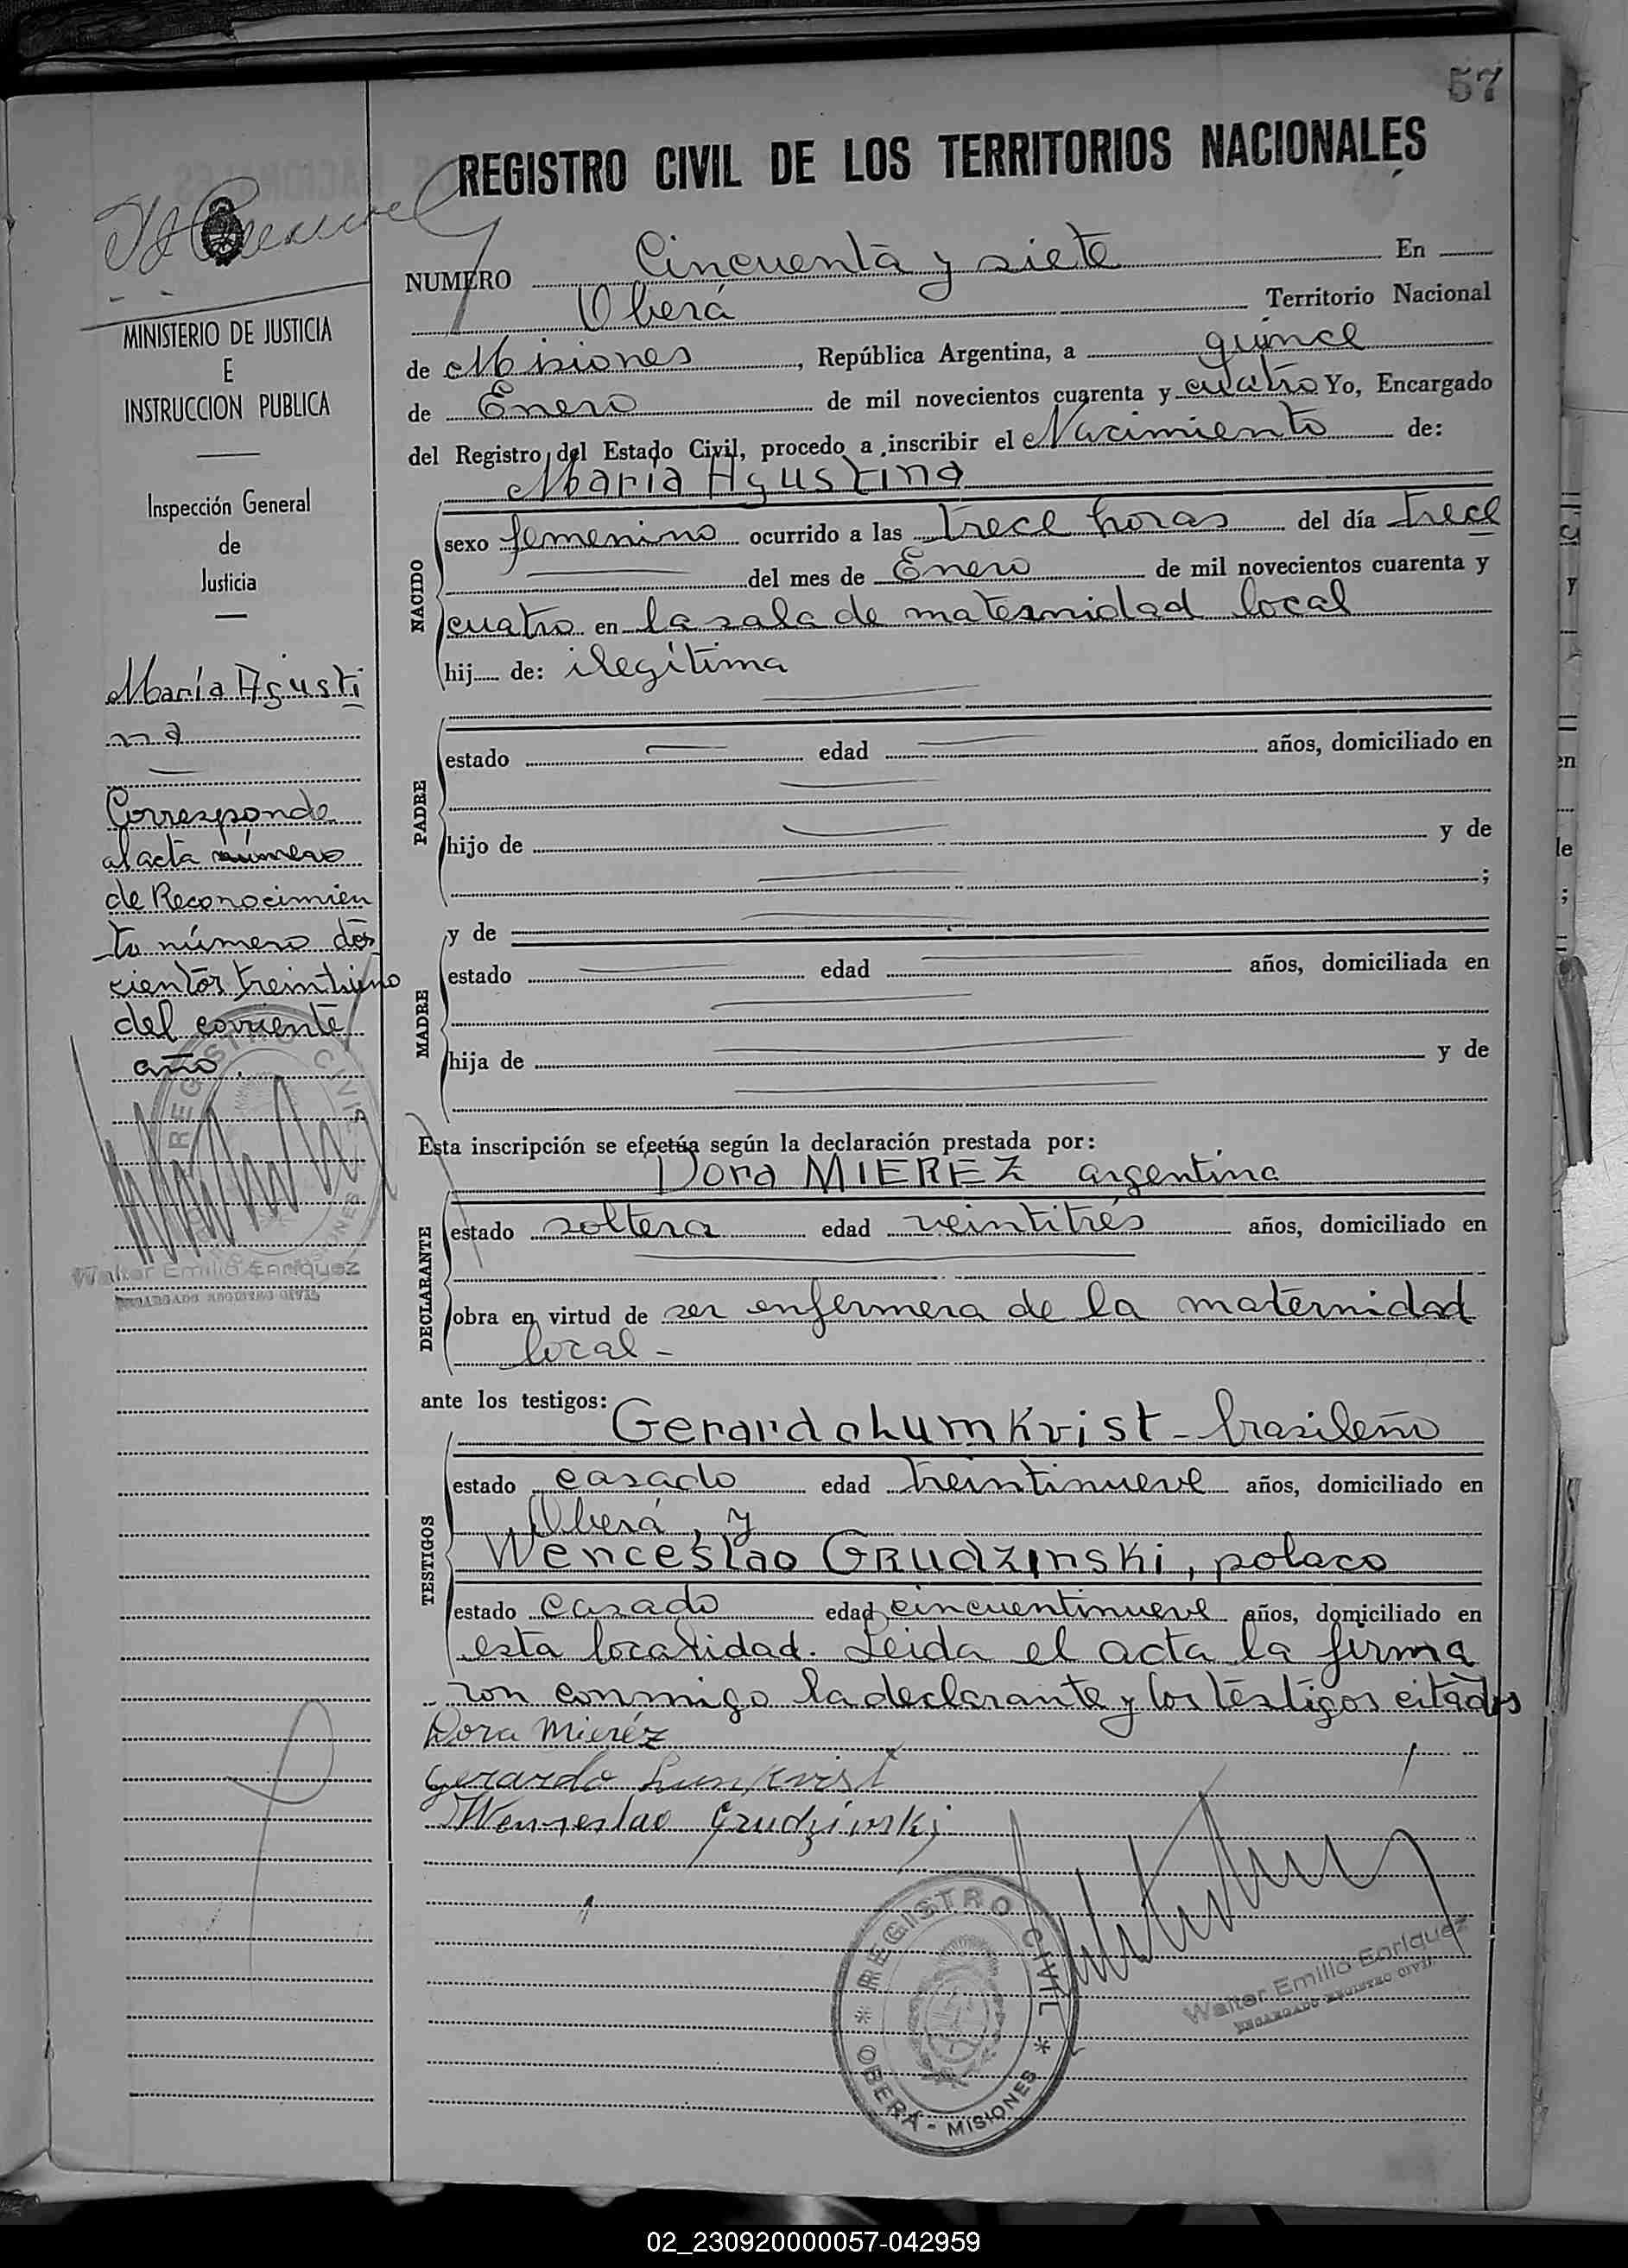 57
REGISTRO CIVIL DE LOS TERRITORIOS NACIONALES
NUMERO Cincuenta y siete En
Oberá Territorio Nacional
de Misiones, República Argentina, a quince
de Enero de mil novecientos cuarenta y cuatro Yo, Encargado
del Registro del Estado Civil, procedo a inscribir el Nacimiento de:
María Agustina
NACIDO
sexo femenino ocurrido a las trece horas del día trece
del mes de Enero de mil novecientos cuarenta y
cuatro en la sala de maternidad local
hij de: ilegítima
PADRE
estado edad años, domiciliado en
hijo de y de
;
y de
MADRE
estado edad años, domiciliada en
hija de y de
Esta inscripción se efectúa según la declaración prestada por:
Dora MIEREZ argentina
DECLARANTE
estado soltera edad veintitrés años, domiciliado en
obra en virtud de ser enfermera de la maternidad
local -
ante los testigos:
Gerardo Lumkvist - brasileño
TESTIGOS
estado casado edad treintinueve años, domiciliado en
Oberá, y
Wenceslao GRUdzinski, polaco
estado casado edad cincuentinueve años, domiciliado en
esta localidad. Leida el acta la firma
ron conmigo la declarante y los testigos citados
Dora Mieréz
Gerardo Lumkvist
Wenseslao Grudzinski
REGISTRO CIVIL
OBERÁ - MISIONES
Walter Emilio Enriquez
ENCARGADO REGISTRO CIVIL
MINISTERIO DE JUSTICIA
E
INSTRUCCION PUBLICA
Inspección General
de
Justicia
María Agusti
na
Corresponde
al acta número
de Reconocimien
to número dos
cientos treintiuno
del corriente
año.
REGISTRO CIVIL
MISIONES
Walter Emilio Enriquez
ENCARGADO REGISTRO CIVIL
02_230920000057-042959